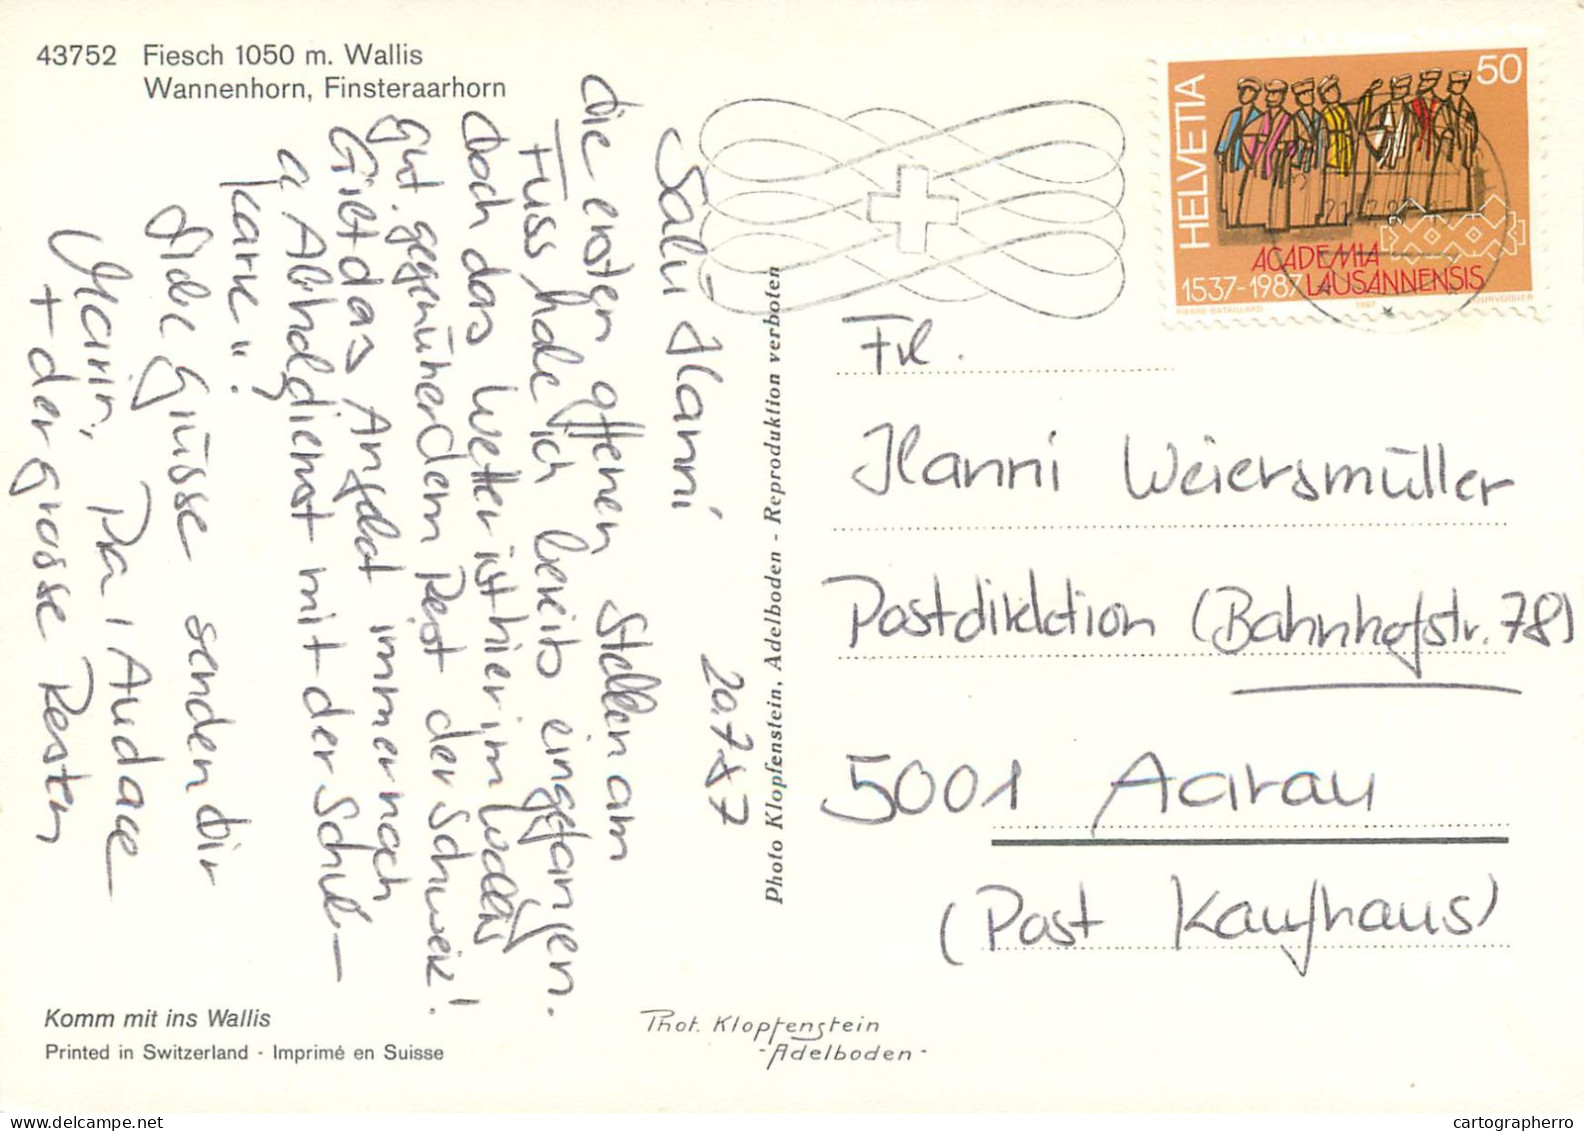 43752 Fiesch 1050 m. Wallis
Wannenhorn, Finsteraarhorn
HELVETIA
50
ACADEMIA
LAUSANNENSIS
1537-1987
PIERRE BATAILLARD
1987
COURVOISIER
20.7.87
Salü Hanni
die ersten offenen Stellen am
Fuss habe ich bereits eingefangen.
doch das Wetter ist hier im Wallis
gut gegenüber dem Rest der Schweiz!
Gibt das Angebot immer noch
a Abholdienst mit der Schub-
karre"?
Liebe Grüsse senden dir
Marin, Pia, Audace
+ der grosse Resten
Photo Klopfenstein, Adelboden - Reproduktion verboten
Frl.
Hanni Weiersmüller
Postdirektion (Bahnhofstr. 78)
5001 Aarau
(Post Kaufhaus)
Komm mit ins Wallis
Printed in Switzerland - Imprimé en Suisse
Phot. Klopfenstein
-Adelboden-
delcampe.net
cartographerro